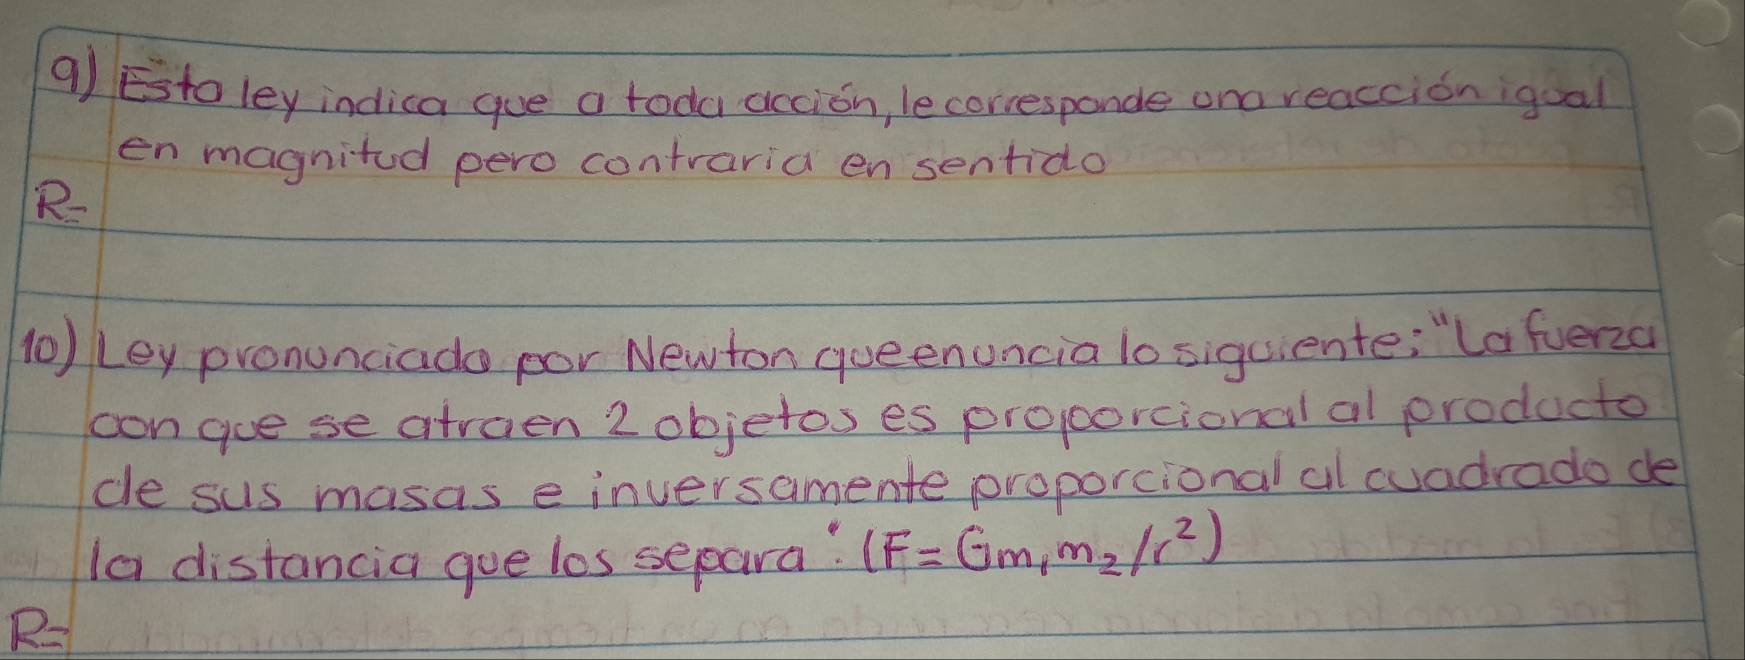 9) Esta ley indica que a toda acción, le corresponde una reacción igual
en magnitud pero contraria en sentido
R=
10) Ley pronunciada por Newton que enuncia lo siguiente: "La fuerza
con que se atraen 2 objetos es proporcional al producto
de sus masas e inversamente proporcional al cuadrado de
la distancia que los separa". (F = Gm₁m₂/r²)
R=